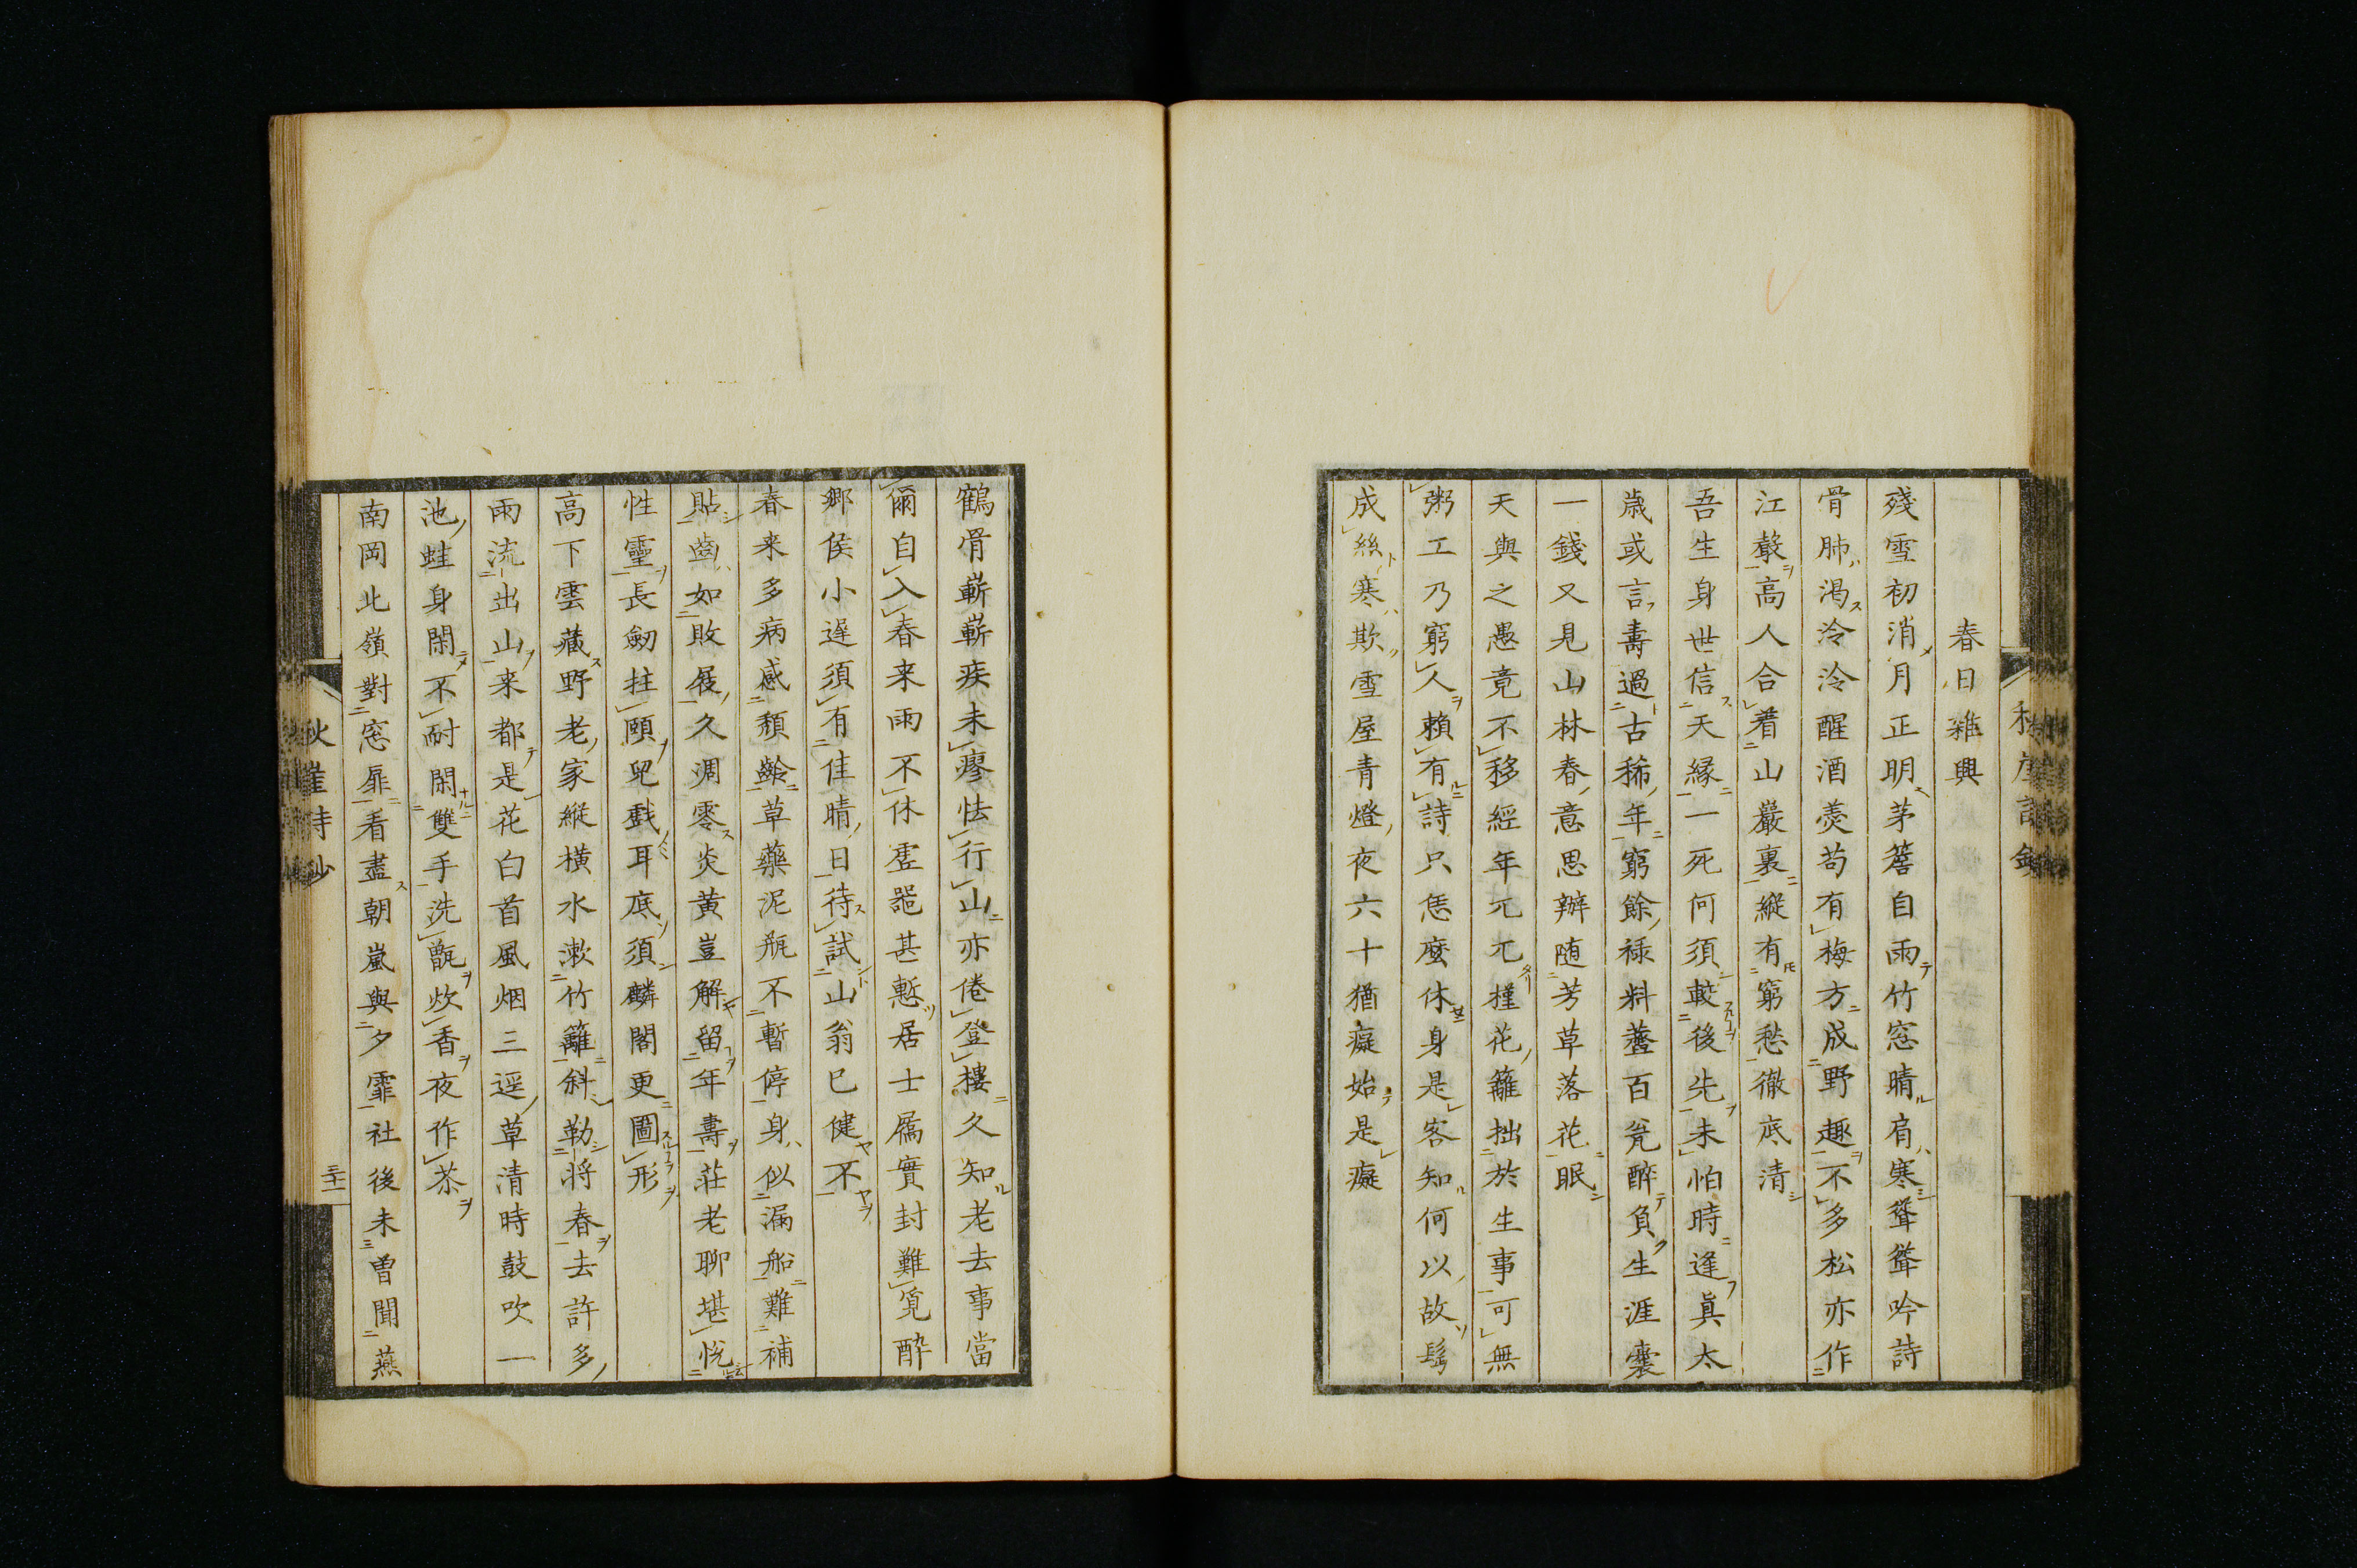 春日雜興
殘雪初消月正明茅簷自雨竹窓晴肩寒聳聳吟詩
骨肺渴泠泠醒酒羮苟有梅方成野趣不多松亦作
江聲高人合看山巖裏縱有窮愁徹底清
吾生身世信天縁一死何須較後先未怕時逢眞太
歳或言壽過古稀年窮餘祿料虀百瓮醉負生涯嚢
一錢又見山林春意思辦随芳草落花眠
天與之愚竟不移經年兀兀槿花籬拙於生事可無
粥工乃窮人頼有詩只恁麼休身是客知何以故髩
成絲寒欺雪屋青燈夜六十猶癡始是癡
鶴骨嶄嶄疾未瘳怯行山亦倦登樓久知老去事當
爾自入春来雨不休虚器甚慙居士屩實封難筧酔
郷侯小遅須有佳晴日待試山翁已健不
春来多病感頽齡草藥泥瓶不暫停身似漏船難補
貼齒如敗屐久凋零炎黄豈解留年壽荘老聊堪悦
性靈長劒拄頤兒戲耳底須麟閣更圖形
高下雲藏野老家縱横水漱竹籬斜勒將春去許多
雨流出山来都是花白首風烟三逕草清時鼓吹一
池蛙身閑不耐閑雙手洗甑炊香夜作茶
南岡北嶺對窓扉看盡朝嵐與夕霏社後未曽聞燕
秋崖詩鈔
三十一